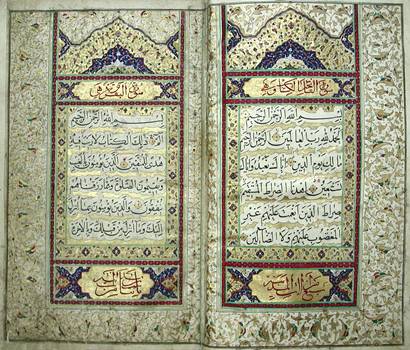 سورة الكتاب وهي
بسم الله الرحمن الرحيم
الحمد لله رب العالمين الرحمن الرحيم
مالك يوم الدين اياك نعبد واياك
نستعين اهدنا الصراط المستقيم
صراط الذين انعمت عليهم غير
المغضوب عليهم ولا الضالين
سورة البقرة وهي
بسم الله الرحمن الرحيم
الم ذلك الكتاب لا ريب فيه
هدى للمتقين الذين يؤمنون بالغيب
ويقيمون الصلوة ومما رزقناهم
ينفقون والذين يؤمنون بما انزل
اليك وما انزل من قبلك وبالاخرة